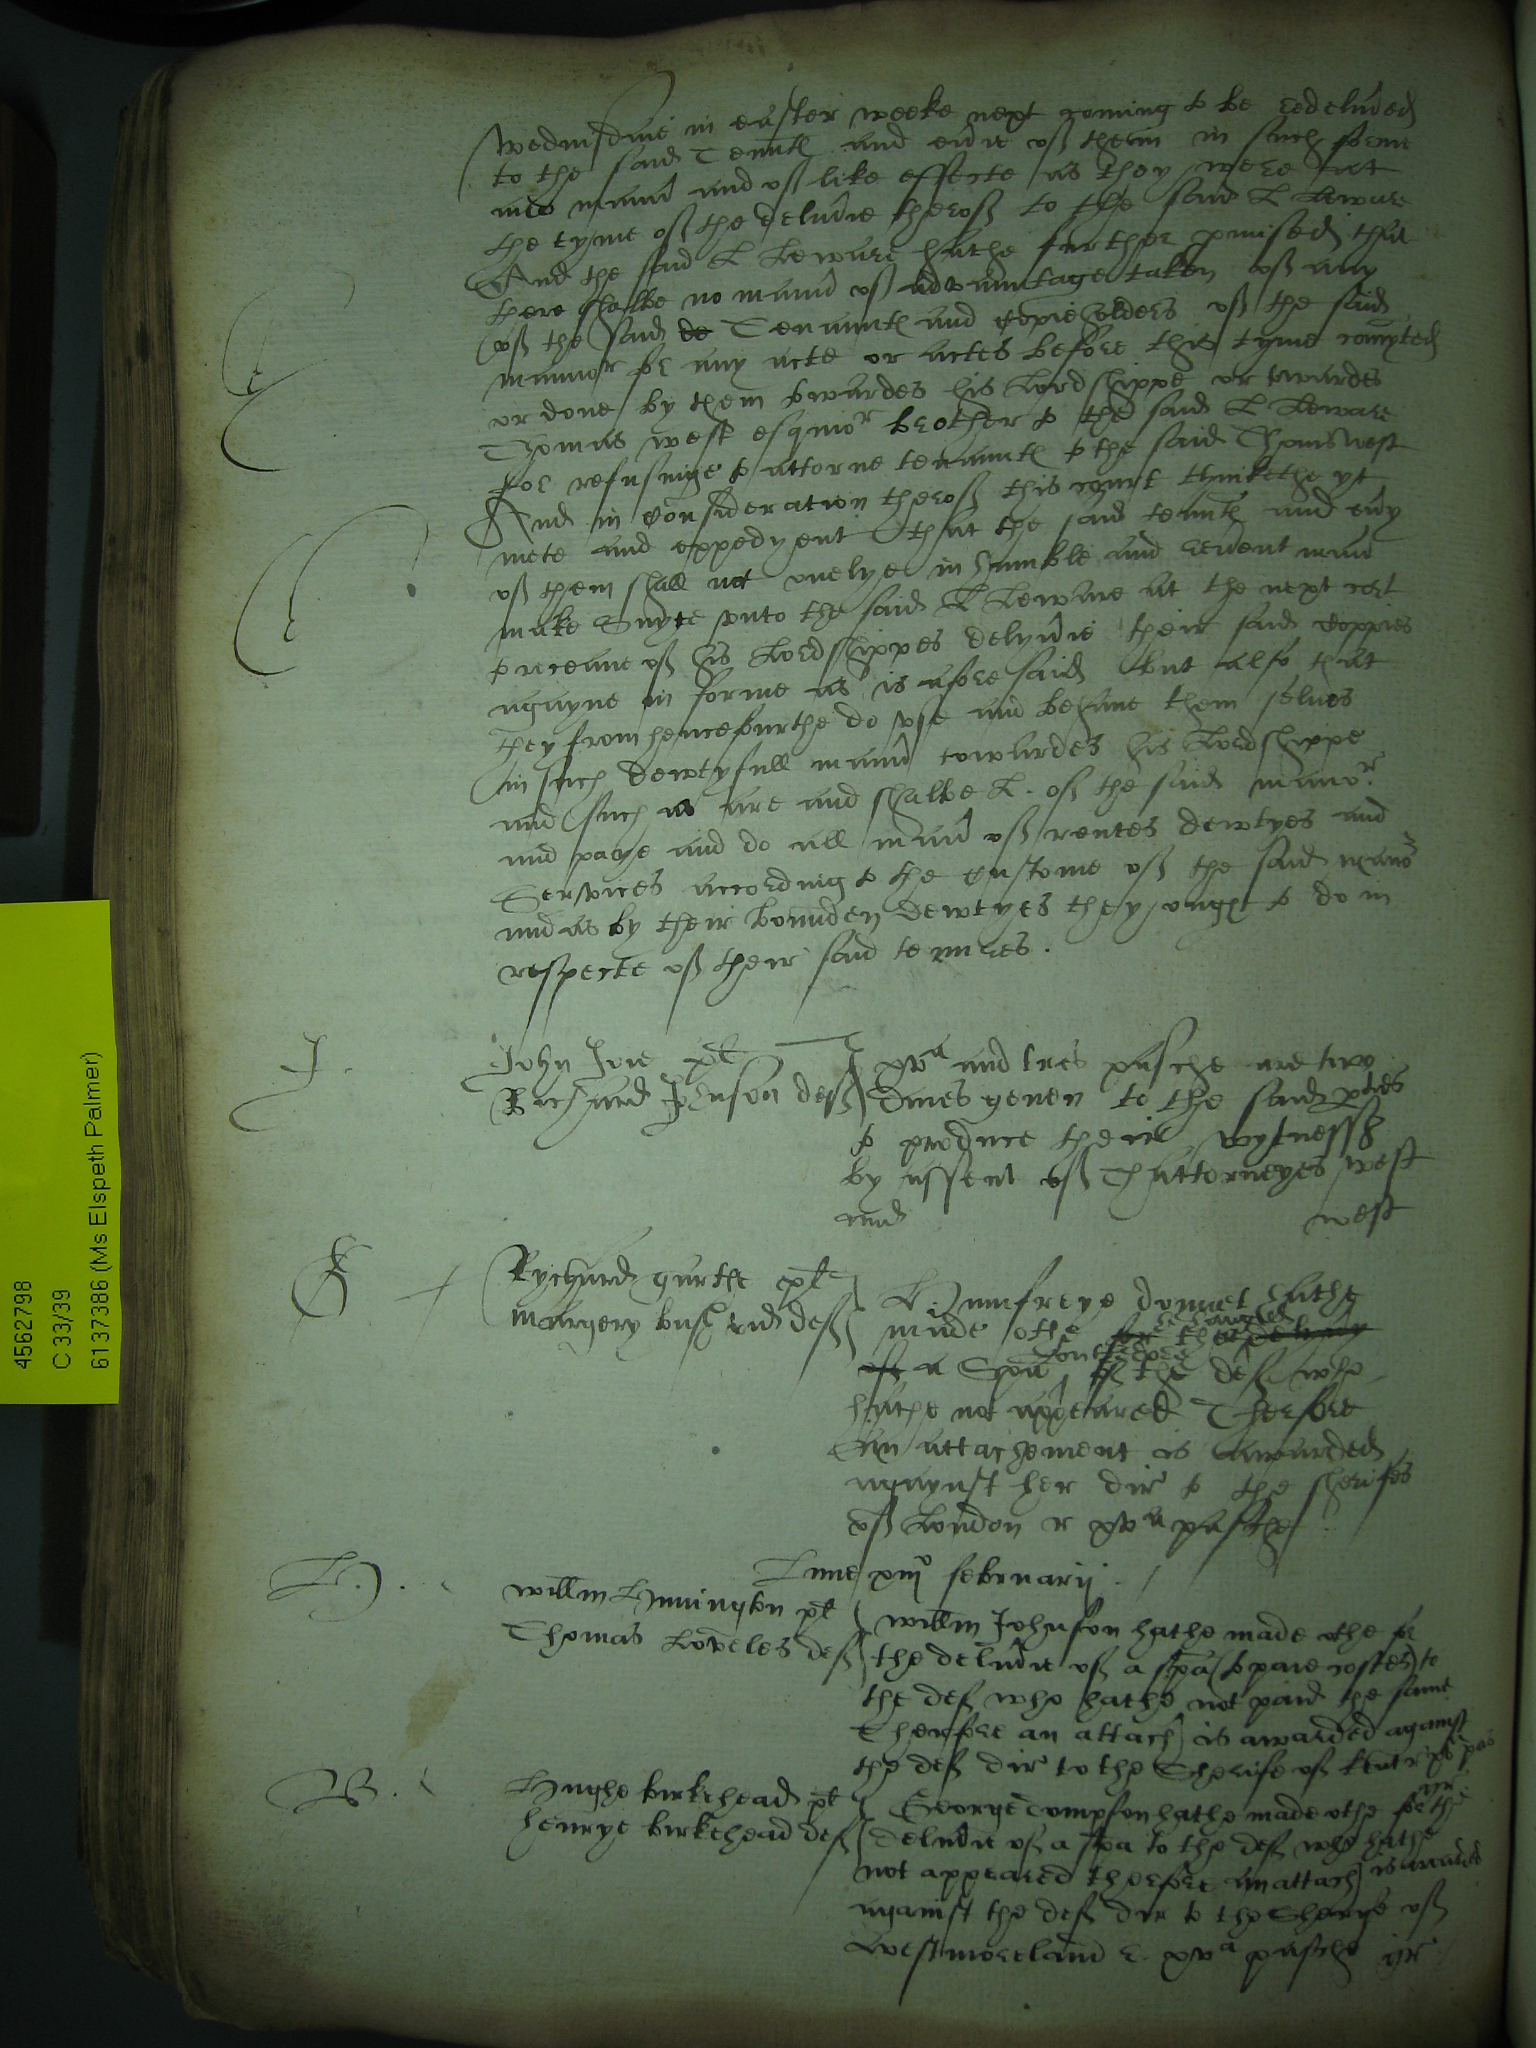 Wednisdaie in easter weeke next coming to be redelived
to the said Tennts and evie of them in such forme
and mann and of like effecte as they were at
the tyme of the delivie therof to the said L Leware
And the said L Leware hathe further pmised that
there shalbe no mann of advauntage taken of any
of the said de Tenaunts and Copieholders of the said
mannor for any acte or actes before this tyme comytted
or done by them towardes his Lordshippe or towardes
Thomas West esquior brother to the said L Leware
for refusinge to attorne tenaunts to the said Thoms West
And in Consideration therof this court thinkethe yt
mete and expedyent that the said tennts and evy
of them shall not onelye in humble and revent mann
make Suyte vnto the said L Leware at the next cort
to receaue of his Lordshippes delyvie their said Coppies
agayne in forme as is aforesaid but also that
they from hencefurthe do vse and behaue them selues
in such dewtyfull mann towardes his Lordshippe
and such as are and shalbe L. of the said manor
and paye and do all mann of rentes dewtyes and
Services according to the Custome of the said manor
and as by their bounden dewtyes they ought to do in
respecte of their said tenures.
J.
John Jvie pl
Richard Johnson def
xva and tres pasche are two
Daies geuen to the said pties
to produce their wytnesses
by assent of Thattorneyes West
and West
G
Rychard garthe pl
Margery bush vid def
Humfreye donnet hathe
made othe for the delivy he hanged
of a Spa vpon the dore of the def who
hathe not appeared Therfore
an attachement is awarded
agaynst her dir to the Sherifes
of London r xva pasche
Lune xiijo februarij.
H.
Willm Hunington pl
Thomas Loveles def
Willm Johnson hathe made othe for
the delivie of a spa (to paie costes) to
the def who hathe not paid the same
Therfore an attach is awarded against
the def dir to the Sherife of Kent r xva pas
B.
Hughe birkehead pl
Henrye birkehead def
George Tompson hathe made othe for the
delivie of a spa to the def who hathe
not appeared therfore an attach is awarded
against the def dir to the Sherife of
Westmoreland r. xva pasche